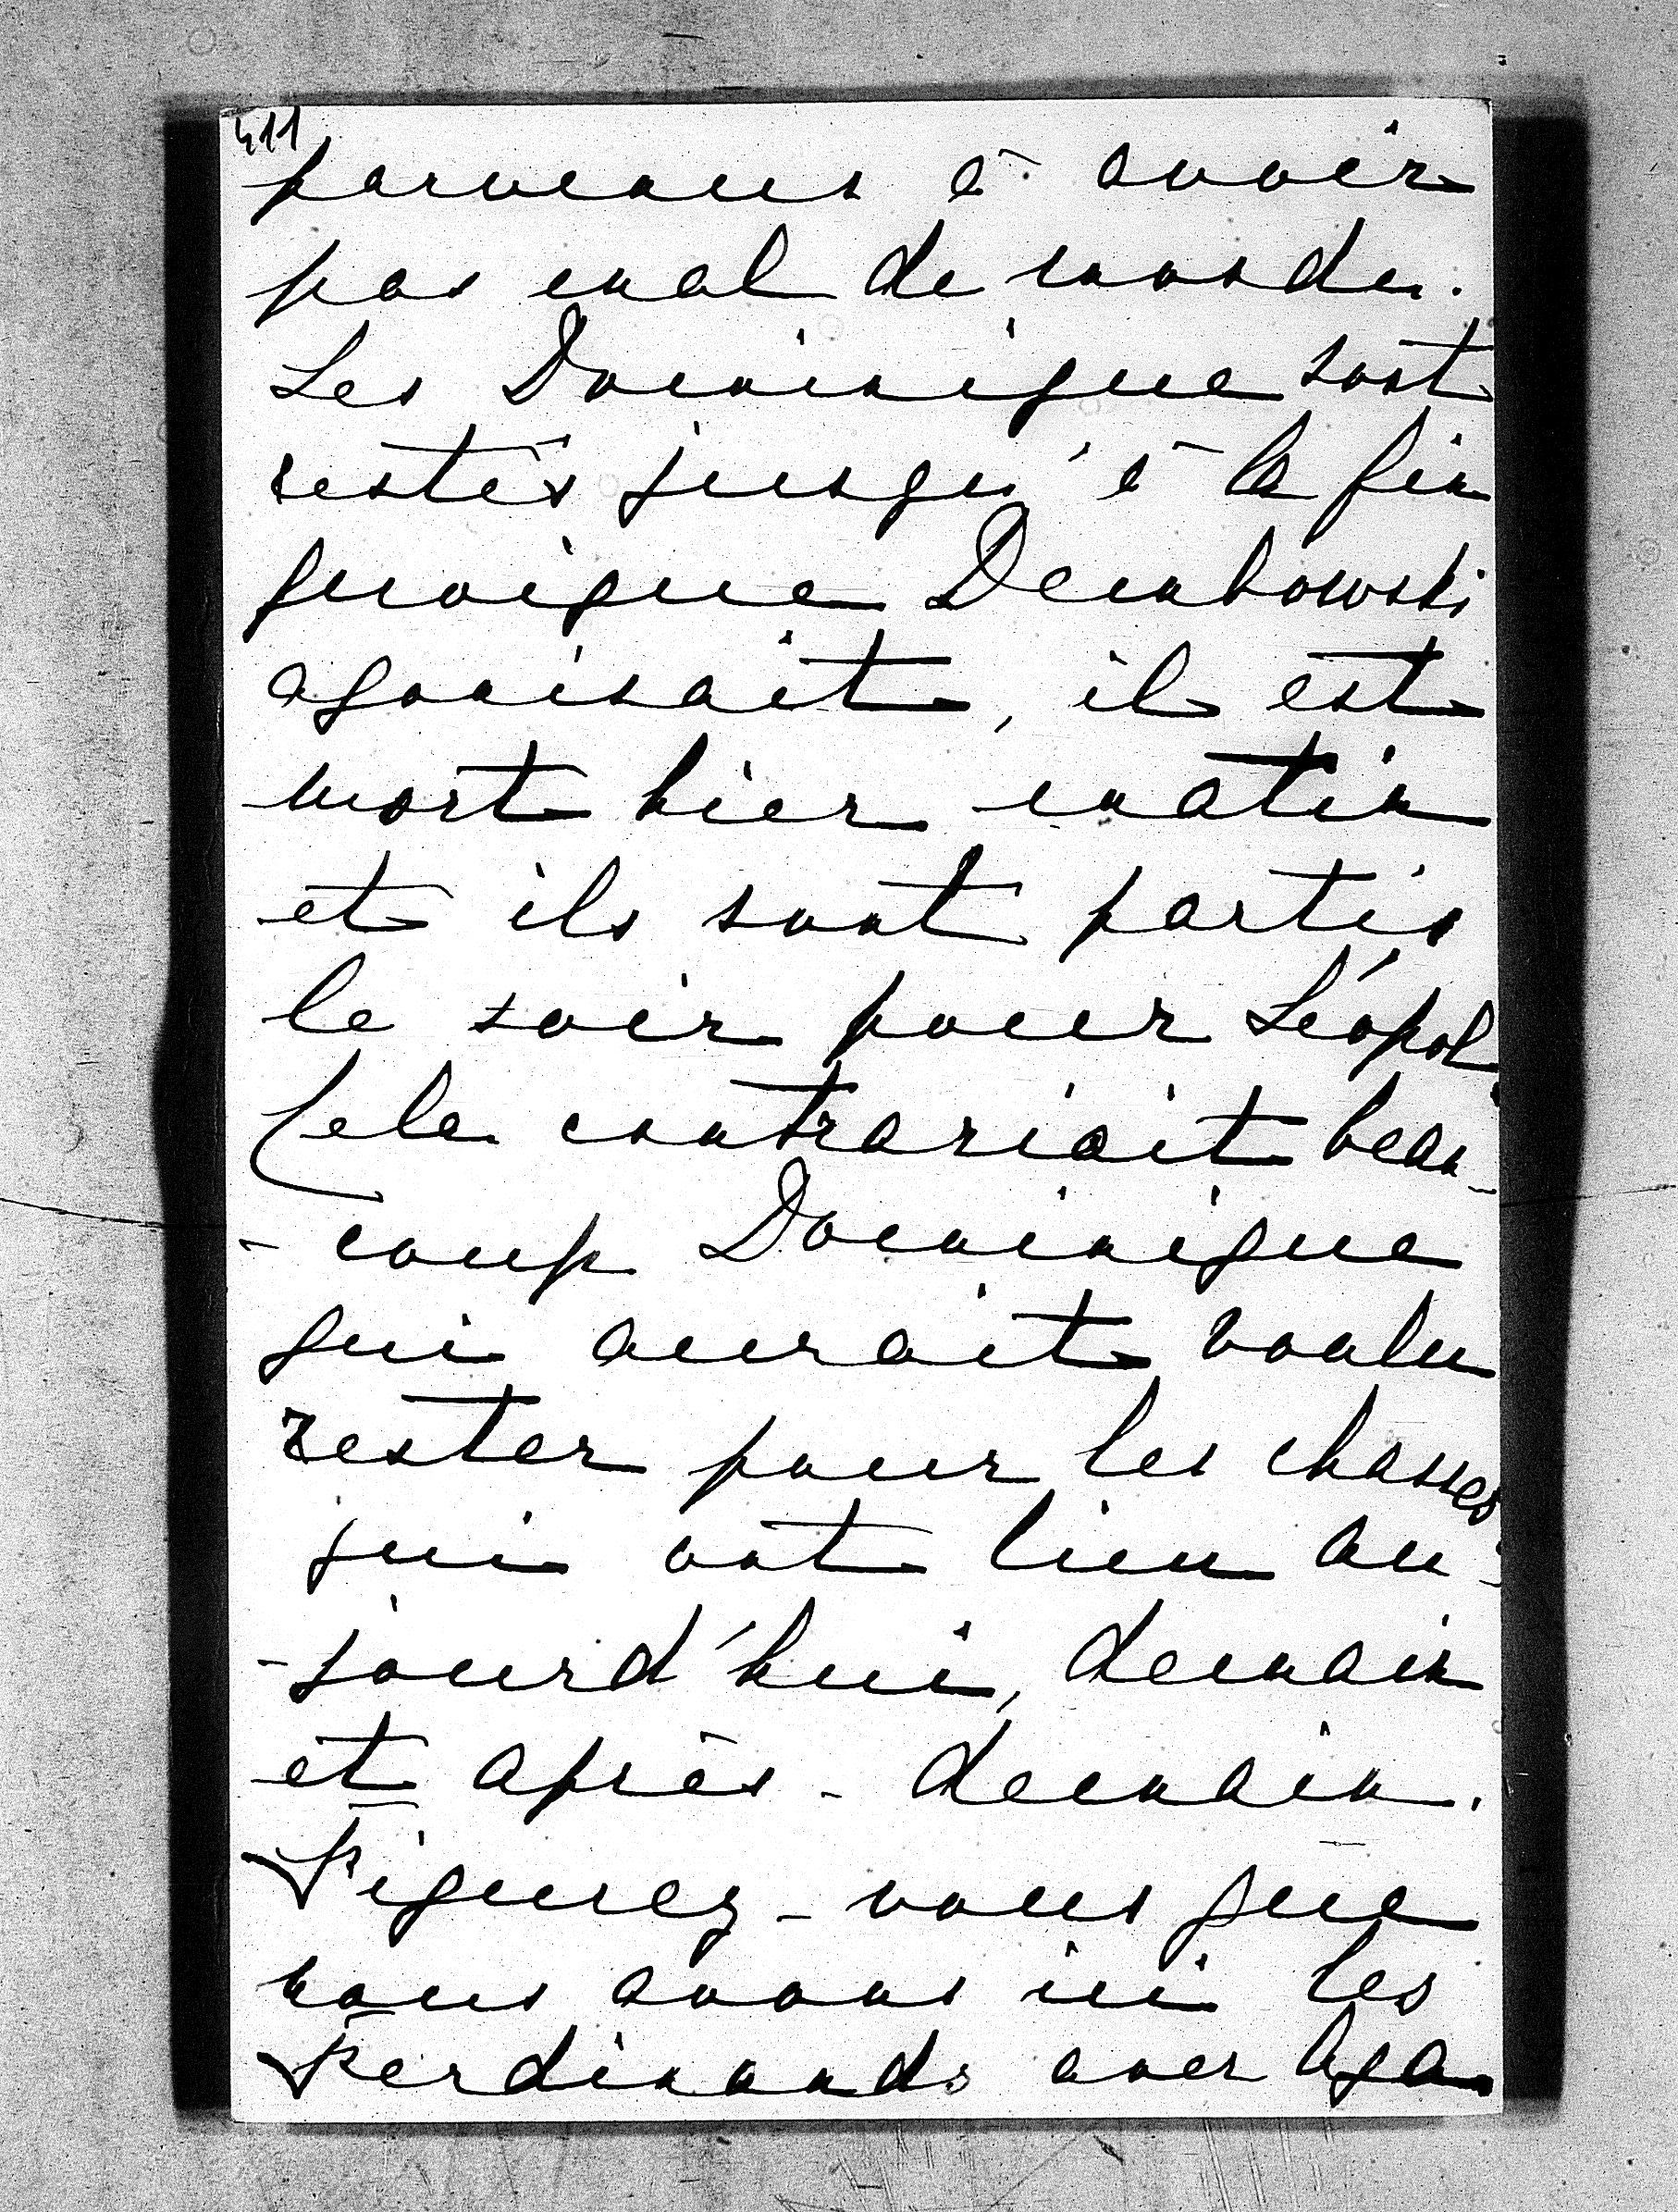 411
parvenus à avoir
pas mal de monde.
Les Dominique sont
restés jusqu'à la fin
quoique Dembowski
agonisait, il est
mort hier matin
et ils sont partis
le soir pour Léopol.
Cela contrariait beau-
- coup Dominique
qui aurait voulu
rester pour les chasses
qui ont lieu au-
-jourd'hui, demain
et après-demain.
Figurez-vous que
nous avons ici les
Ferdinands avec Aga